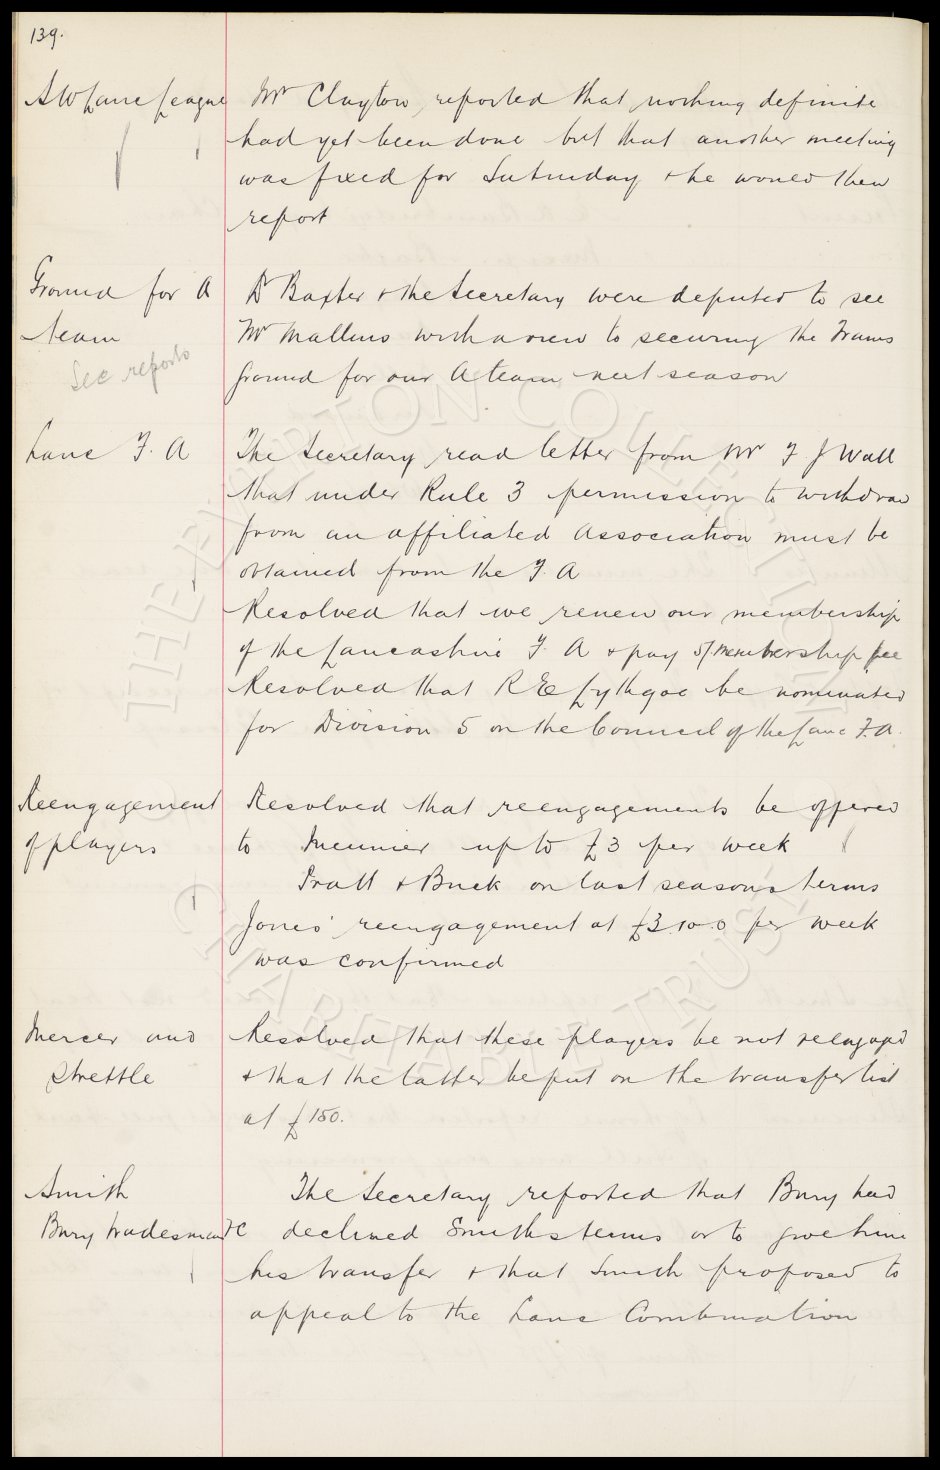 139.
S W Lanc League
Mr Clayton reported that nothing definite
had yet been done but that another meeting
was fixed for Saturday & he would then
report
Ground for A
team
See reports
Dr Baxter & the Secretary were deputed to see
Mr Mallins with a view to securing the Trams
ground for our A team next season
Lanc F. A
The Secretary read letter from Mr F J Wall
that under Rule 3 permission to withdraw
from an affiliated Association must be
obtained from the F. A
Resolved that we renew our membership
of the Lancashire F. A & pay 5/ membership fee
Resolved that R E Lythgoe be nominated
for Division 5 on the Council of the Lanc F. A.
Reengagement
of players
Resolved that reengagements be offered
to Meunier up to £3 per week
Pratt & Buck on last seasons terms
Jones' reengagement at £3.10.0 per week
was confirmed
Mercer and
Strettle
Resolved that these players be not reengaged
& that the latter be put on the transfer list
at £150.
Smith
Bury tradesman FC
The Secretary reported that Bury had
declined Smiths terms or to give him
his transfer & that Smith proposed to
appeal to the Lanc Combination
THE EVERTON COLLECTION
CHARITABLE TRUST